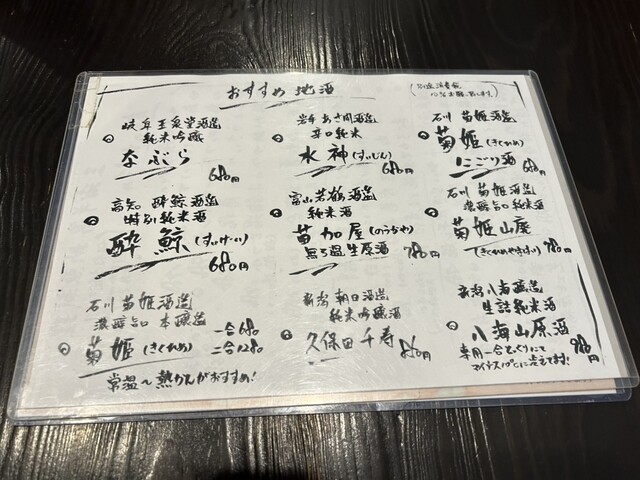 おすすめ 地酒
(別途消費税
10%お願い致します)
岐阜 玉泉堂酒造
純米吟醸
なぶら
680円
高知 酔鯨酒造
特別純米酒
酔鯨(すいげーい)
680円
石川 菊姫酒造
濃醇旨口 本醸造
菊姫(きくひめ) 一合680
二合1280
常温〜熱かんがおすすめ!
岩手 あさ開酒造
辛口純米
水神(すいじん)
680円
富山 若鶴酒造
純米酒
苗加屋(のうかや)
無ろ過生原酒 780円
新潟 朝日酒造
純米吟醸酒
久保田千寿 860円
石川 菊姫酒造
菊姫(きくひめ)
にごり酒
680円
石川 菊姫酒造
濃醇旨口純米酒
菊姫山廃
(きくひめやまはい) 780円
新潟 八海醸造
生詰純米酒
八海山原酒
専用一合とっくりにて 980円
マイナス10℃に冷えてます!